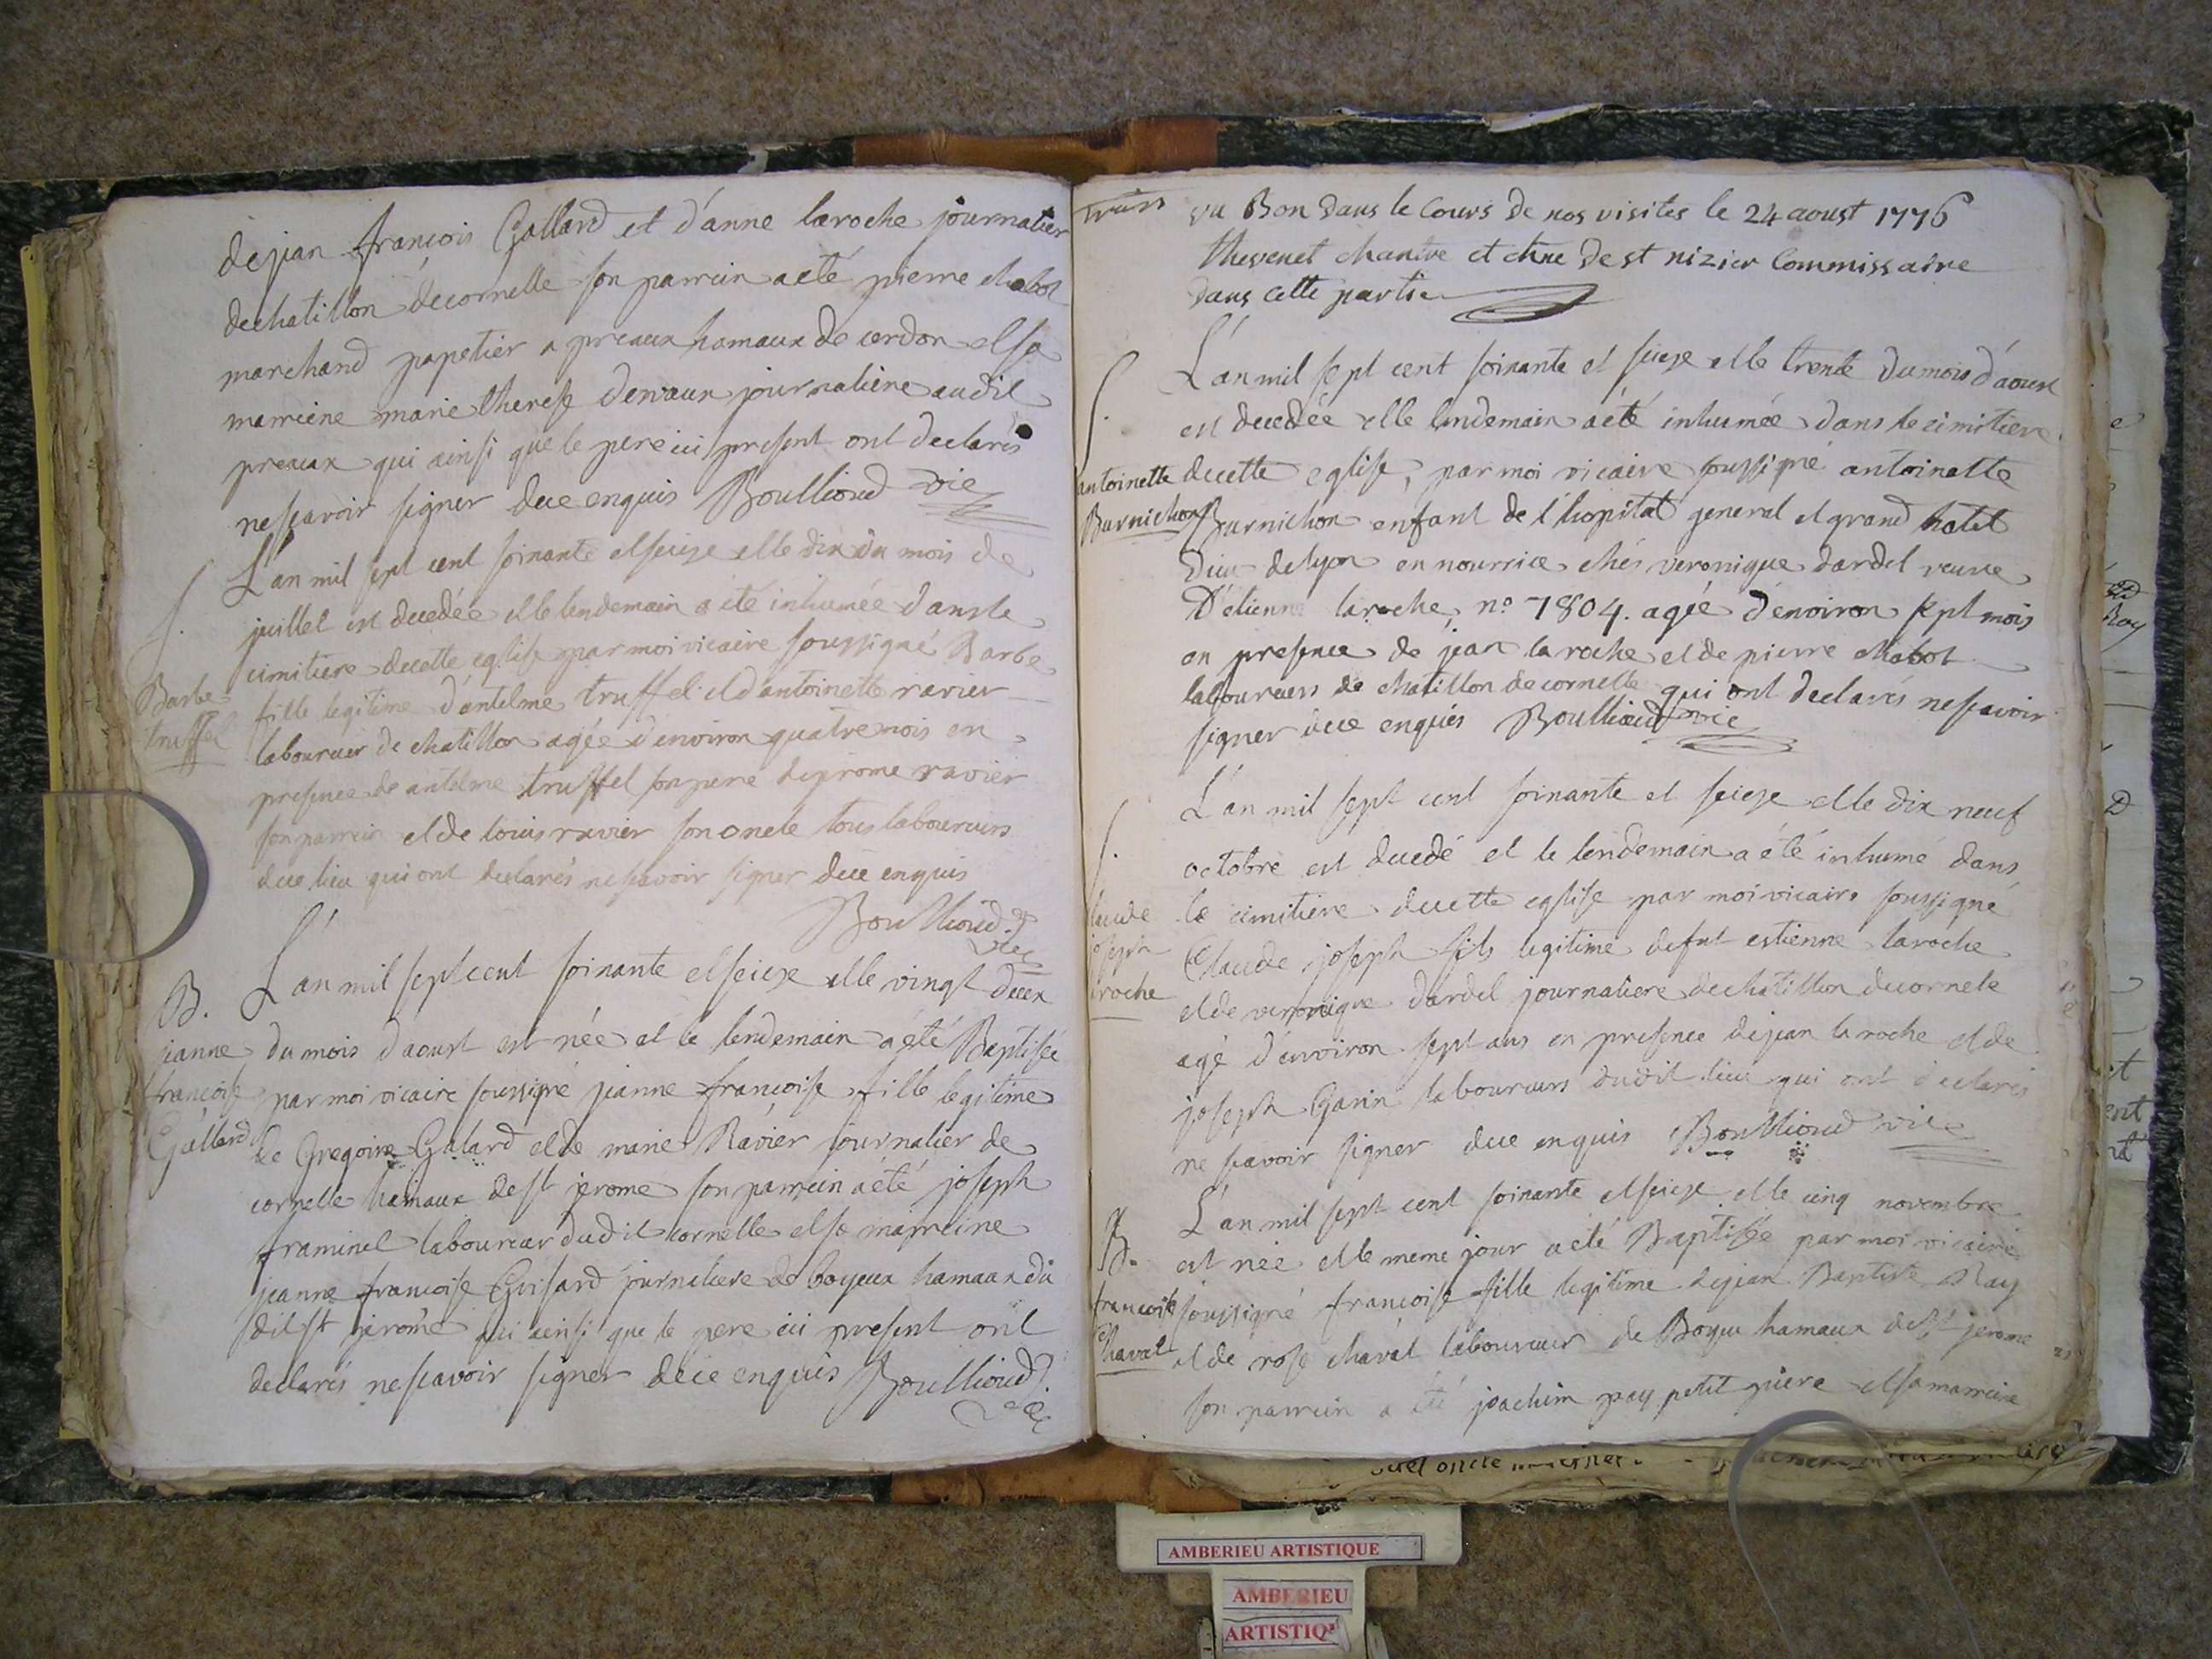 dejean françois Gallard et d'anne laroche journalier
dechatillon decornelle son parrein a eté pierre chabot
marchand papetier a preaux hamaux de cerdon et sa
marreine marie therese devaux journaliere audit
preaux qui ainsi que le pere ici present ont declarés
nescavoir signer de ce enquis Boullioud vic
S.
L'an mil sept cent soixante et seize et le dix du mois de
juillet est decedée et le lendemain a été inhumée dans le
cimitiere decette eglise par moi vicaire soussigné Barbe
Barbe
truffel
fille legitime d'antelme truffel et d'antoinette ravier
laboureur de chatillon agée d'environ quatre mois en
presence de antelme truffel son pere dejerome ravier
son parrein et de louis ravier son oncle tous laboureurs
du lieu qui ont declarés nescavoir signer de ce enquis
Boullioud vic
B.
jeanne
françoise
Gallard
L'an mil sept cent soixante et seize et le vingt deux
du mois d'aoust est née et le lendemain a été Baptisée
par moi vicaire soussigné jeanne françoise fille legitime
de Gregoire Galard et de marie Ravier journalier de
cornelle hamaux de st jerome son parrein a été joseph
framinet laboureur dudit cornelle et sa marreine
jeanne françoise Grisard journaliere de boyeux hamaux du
dit st jerome qui ainsi que le pere ici present ont
declarés nescavoir signer de ce enquis Boullioud
vic
vu Bon dans le Cours de nos visites le 24 aoust 1776
thevenet chantre et chne de st nizier Commissaire
dans cette partie
S.
antoinette
Burnichon
L'an mil sept cent soixante et seize et le trente du mois d'aoust
est decedée et le lendemain a été inhumée dans le cimitiere
decette eglise, par moi vicaire soussigné antoinette
Burnichon enfant de l'hopital general et grand hotel
Dieu de lyon en nourrice chés veronique dardel veuve
D'étienne laroche, no 7804. agée d'environ sept mois
en presence de jean la roche et de pierre chabot
laboureurs de chatillon de cornelle qui ont declarés nescavoir
signer de ce enquis Boullioud vic
S.
Claude
joseph
laroche
L'an mil sept cent soixante et seize et le dix neuf
octobre est decedé et le lendemain a été inhumé dans
le cimitiere decette eglise par moi vicaire soussigné
Claude joseph fils legitime defut estienne laroche
et de veronique dardel journaliere dechatillon decornele
agé d'environ sept ans en presence dejean la roche et de
joseph Garin laboureurs dudit lieu qui ont declarés
ne scavoir signer de ce enquis Boullioud vic
B.
françoise
Chavat
L'an mil sept cent soixante et seize et le cinq novembre
est née et le meme jour a eté Baptisée par moi vicaire
soussigné françoise fille legitime dejean Baptiste Ray
et de rose chavat laboureur de Boyeu hamaux de St jerome
son parrein a été joachim petit et sa marreine
AMBERIEU ARTISTIQUE
AMBERIEU
ARTISTIQ